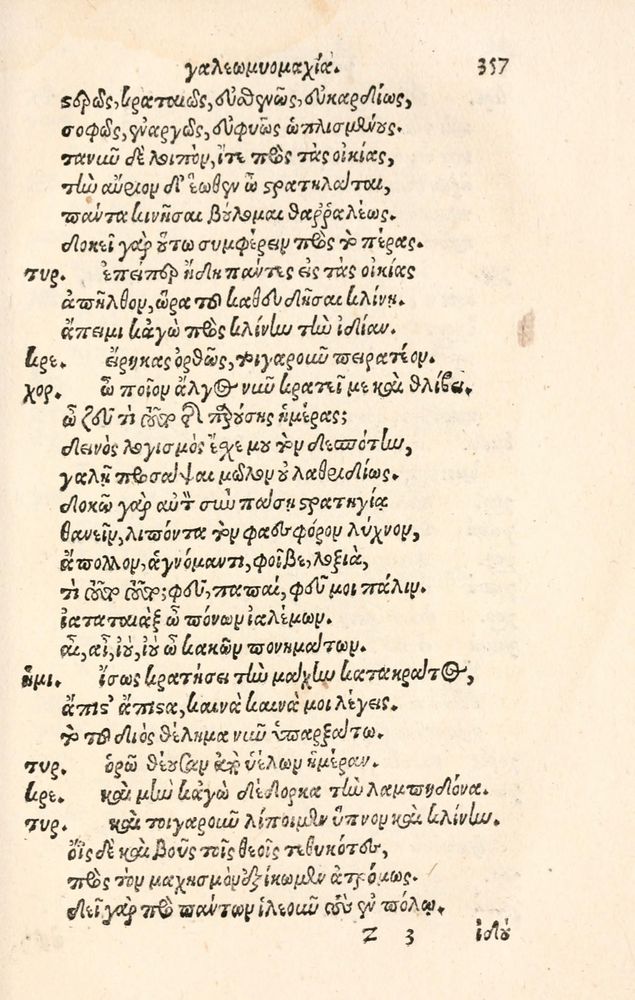 γαλεωμυομαχία. 357
στερρῶς, κραταιῶς, εὐσθενῶς, εὐκαρδίως,
σοφῶς, ἐναργῶς, εὐφυῶς ὡπλισμένους.
τανῦν δὲ λοιπὸν, ἴτε πρὸς τὰς οἰκίας,
τὴν αὔριον δ' ἕωθεν ὦ στρατηλάται,
πάντα κινῆσαι βούλομαι θαρραλέως.
δοκεῖ γὰρ οὕτω συμφέρειν πρὸς τὸ πέρας.
τυρ. ἐπείπερ ἤδη πάντες εἰς τὰς οἰκίας
ἀπῆλθον, ὥρα τοῦ καθευδῆσαι κλίνῃ.
ἄπειμι κἀγὼ πρὸς κλίνην τὴν ἰδίαν.
κρε. εἴρηκας ὀρθῶς, τοιγαροῦν πειρατέον.
χορ. ὦ ποῖον ἄλγος νῦν κρατεῖ με καὶ θλίβει.
ὦ ζεῦ τί ἆρ' ἐκ τῆς παρούσης ἡμέρας;
δεινὸς λογισμὸς ἔχε μου τὸν δεσπότην,
γαλῇ προσάψαι μῶλον οὐ λαθριδίως.
δοκῶ γὰρ αὐτὸν σὺν πάσῃ στρατηγίᾳ
θανεῖν, λιπόντα τὸν φαυσφόρον λύχνον,
ἄπολλον, ἁγνόμαντι, φοῖβε, λοξιὰ,
τί ἆρ' ἆρ'; φεῦ, παπαί, φεῦ μοι πάλιν.
ἰατατοιὰξ ὦ πόνων ἰαλέμων.
αἲ, αἲ, ἰοὺ, ἰοὺ ὦ κακῶν πονημάτων.
ἡμι. ἴσως κρατήσει τὴν μάχην κατακράτος,
ἄπιστ' ἄπιστα, καινὰ καινὰ μοι λέγεις.
τὸ τοῦ διὸς θέλημα νῦν ὑπαρξάτω.
τυρ. ὁρῶ θέουσαν ἀφ' ὑέλων ἡμέραν.
κρε. καὶ μὴν κἀγὼ δέδορκα τὴν λαμπηδόνα.
τυρ. καὶ τοιγαροῦν λίποιμεν ὕπνον καὶ κλίνην.
ὄϊς δὲ καὶ βοῦς τοῖς θεοῖς τεθυκότες,
πρὸς τὸν μαχησμὸν ἐξίκωμεν ἀτρόμως.
δεῖ γὰρ πρὸ πάντων ἱλεοῦν τοὺς ἐν πόλῳ.
Z 3 ἰδοὺ